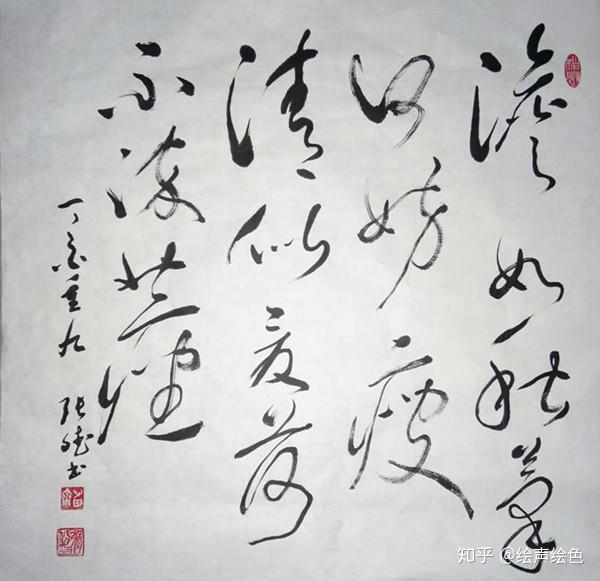 澹如秋菊
何妨瘦
清似夏荷
不染塵
丁酉重九 张斌书
知乎 @绘声绘色